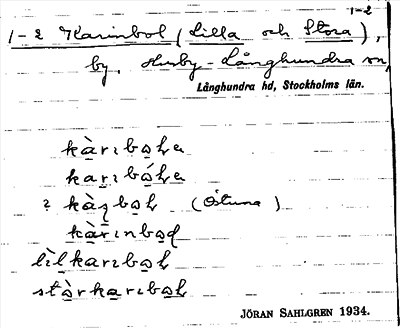 1-2
1-2 Karinbol (Lilla och Stora),
by, Husby-Långhundra sn,
Långhundra hd, Stockholms län.
kàrıbo̱ɫa
karıbó̱ɫa
2 (Östuna)
kàrinbo̱ɫ
lìlkarıbo̱ɫ
stòrkarıbo̱ɫ
JÖRAN SAHLGREN 1934.